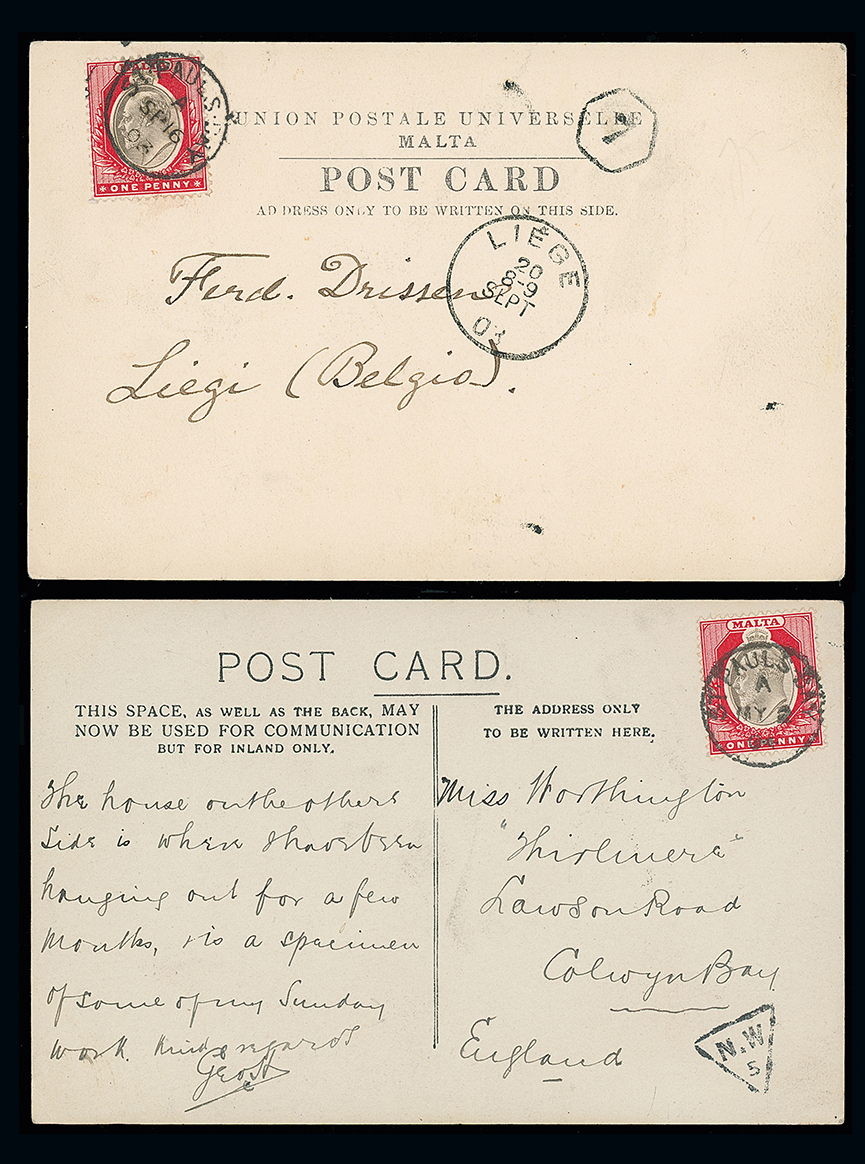 ST PAULS BAY
A
SP 16
03
ONE PENNY
UNION POSTALE UNIVERSELLE
MALTA
POST CARD
ADDRESS ONLY TO BE WRITTEN ON THIS SIDE.
LIÉGE
20
8-9
SEPT
03
Ferd. Drissen
Liégi (Belgio).
MALTA
ST PAULS BAY
A
MY
ONE PENNY
POST CARD.
THIS SPACE, AS WELL AS THE BACK, MAY
NOW BE USED FOR COMMUNICATION
BUT FOR INLAND ONLY.
The house on the other
side is where I have been
hanging out for a few
months, & is a specimen
of some of my Sunday
work. Kind regards
THE ADDRESS ONLY
TO BE WRITTEN HERE.
Miss Worthington
"Thirlmere"
Lawson Road
Colwyn Bay
England
N.W.
5